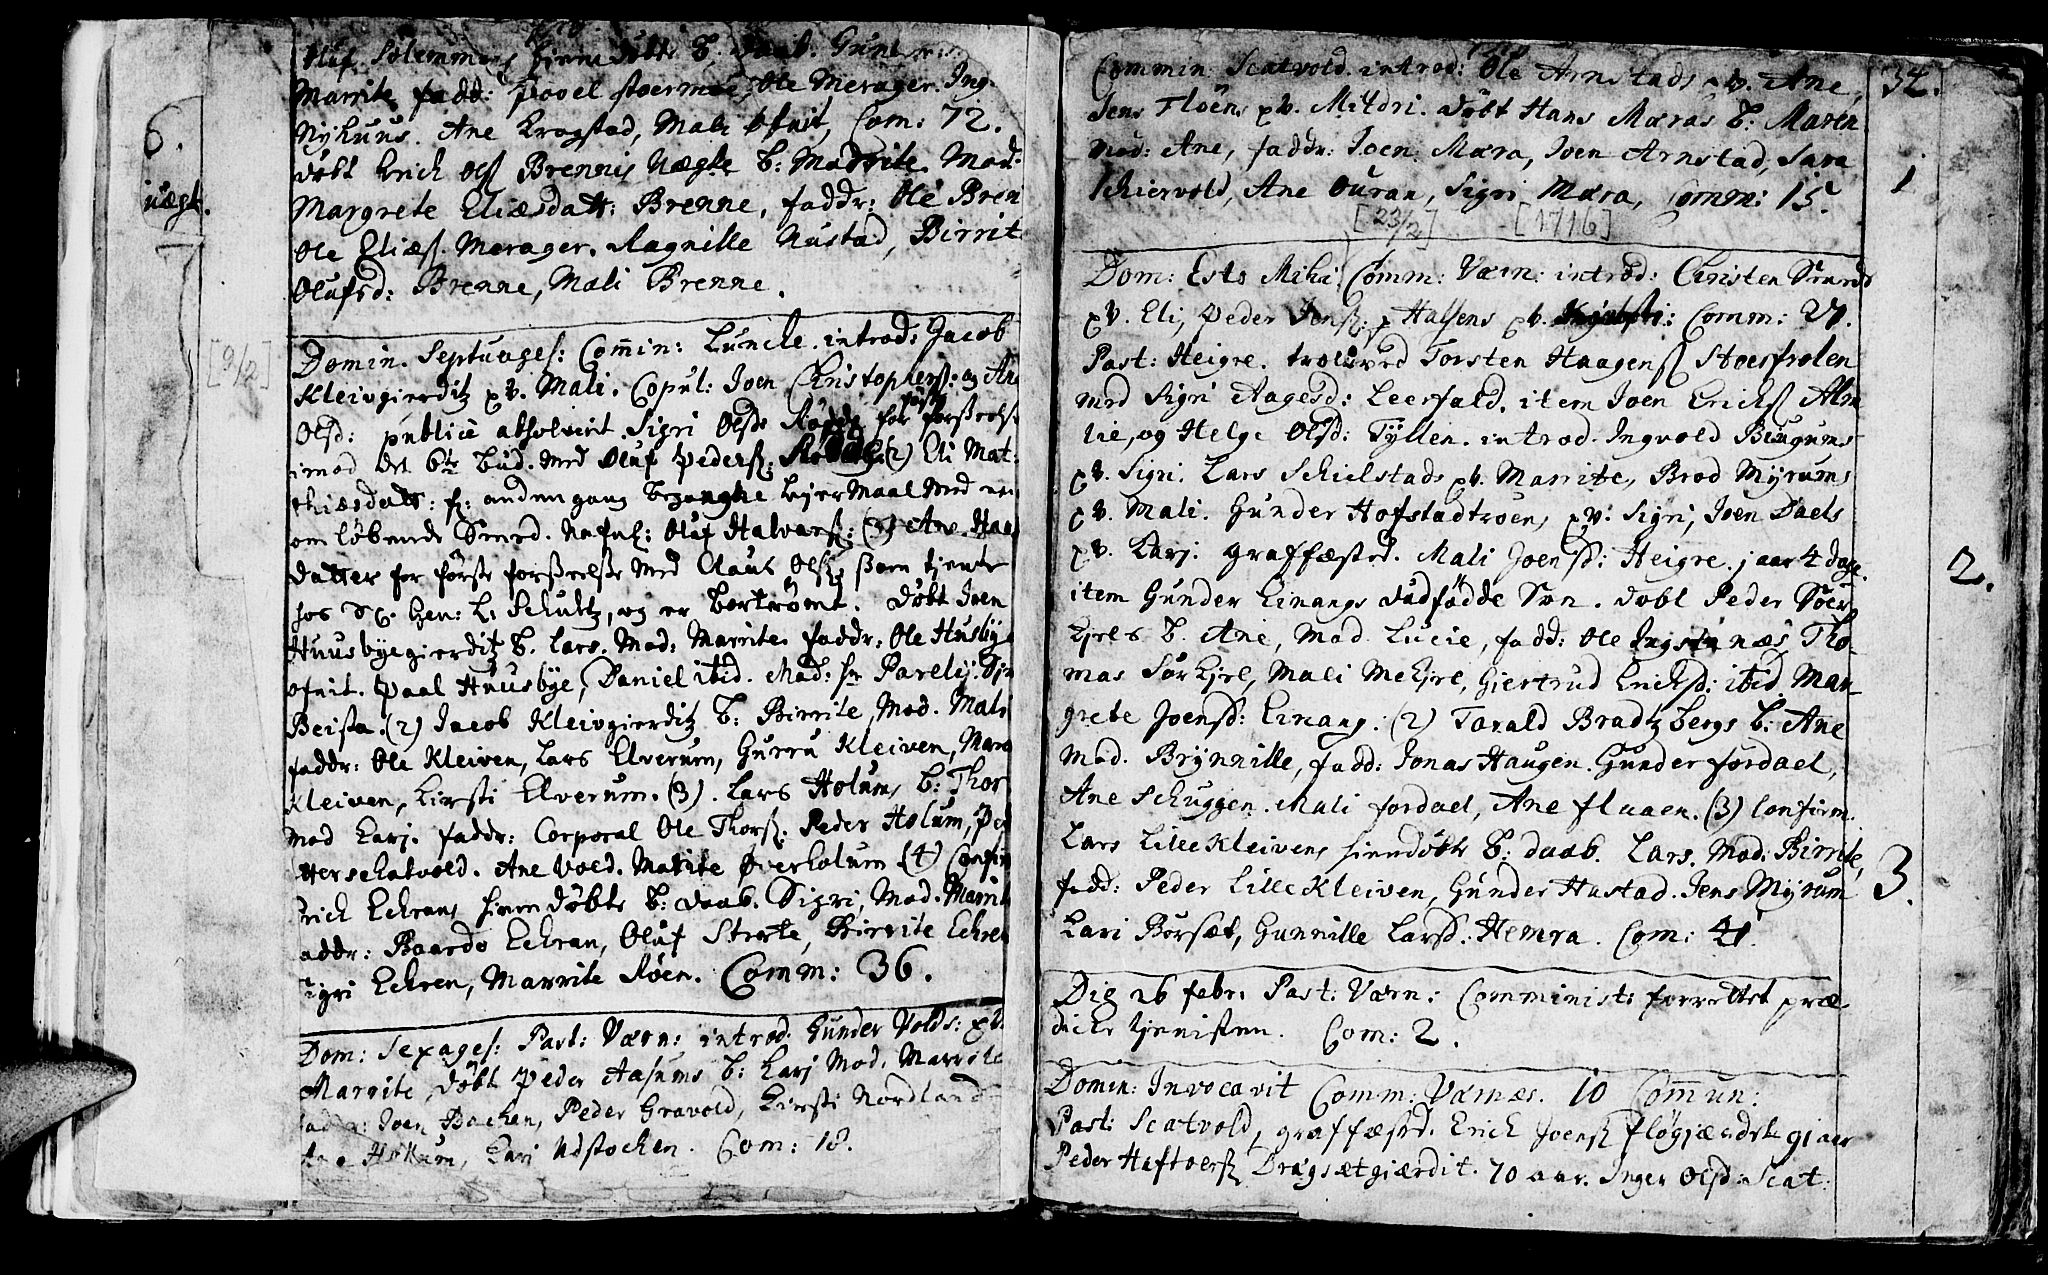 Oluf Solemmens hiemdøbte B. daab. Gun
Marrite fadd: Povel stoermoe, Ole Merager. Ing
Nyhuus. Ane Krogstad, Mali Ofnit, Com: 72.
døbt Erich Olß Brennis Uægte B: Marrite Mod:
Margrete Eliæsdatt: Brenne, faddr: Ole Bren
Ole Eliæß. Merager. Ragnille Nustad, Birrit
Olufsd: Brenne, Mali Brenne.
6.
uægt.
[9/2]
Domin. Septuages: Comin: Luncke. introd: Jacob
Kleivgierditz qv. Mali. Copul: Joen Christophers: og An
Olsd: publice absolverit. Sigri Olsd: for forseelse
imod det 6te bud. med Oluf Peders: (2) Eli Mat-
thiesdatt: f: anden gang begangne Lejermaal med en
omløbende Smed. Nafnl: Oluf Halvarß: (3) Ane Haa
datter for første forseelse med Claus Olß som tjente
hos Gen: L: Schultz, og er bortrømt. Døbt Joen
Huusbyegierditz B. Lars. Mod: Marrite. faddr: Ole Husbye
Ofnit. Paal Huusbye, Daniel ibid. Mad: Sr Parelij.
Beista. (2) Jacob Kleivgierditz B: Birrite, Mod. Mali
faddr: Ole Kleiven, Lars Elverum, Gurru Kleiven, Mar
Kleiven, Kirsti Elverum. (3). Lars Holums B: Thor
Mod Karj. faddr: Corporal Ole Thorß. Peder Holum, Pe
ter schatvold. Ane Vold. Marite Øverholum (4) Confir
Erich Echrans hiemdøbte B: daab. Sigri, Mod. Marrit
addr: Baardo Echran, Oluf Strøte, Birrite Echre
Sigri Echren, Marrite Røen. Comm: 36.
Dom: Sexages: Past: Værn: introd. Gunder Volds: qv.
Marrite, døbt Peder Aasums B: Karj Mod. Marrite
faddr: Joen Bachen, Peder Gravold, Kirsti Nordland
Ane Hollum, Kari Udstochen. Com: 18.
Commin: Scatvold. introd: Ole Arnstads qv. Ane,
Jens Fløens qv. Mildri. døbt Hans Mæras B: Maren
Mod: Ane, faddr: Joen Mæra, Joen Arnstad, Sara
Schiervold, Ane Ouran, Sigri Mæra, Comm: 15.
34.
1
[23/2] [1716]
Dom: Esto Mihi Comm: Værn: introd: Christen
qv. Eli, Peder Jenß. Halsens qv. Comm: 27.
Past: Heigre. troloved Torsten Haagenß Stoerfrolen
med Sigri Aagesd: Leerfald. item Joen Erichß Alm
lie, og Helge Olsd: Tyllen. introd. Ingvold Bingums
qv. Sigri. Lars Schielstads qv. Marrite, Brod Myrums
qv. Mali. Gunder Hofstadtroen, qv. Sigri, Joen Daels
qv. Karj. graffæsted. Mali Joensd: Heigre. j aar 4 dage.
item Gunder Einangs dødfødde Søn. døbt Peder Sør
Kjels B. Ane, Mod. Lucie, fadd: Ole Ingstanæs, Tho-
mas Sørkjel, Mali Mekjel, Giertrud Erichsd: ibid. Mar-
grete Joensd: Einang: (2) Tarald Bradtzbergs B: Ane
Mod. Brynnille, fadd: Jonas Haugen. Gunder fordael,
Ane Schuggen. Mali fordael, Ane fluaen. (3) Confirm.
Lars Lillekleivens hiemdøbte B: daab. Lars. Mod: Birrite,
fadd: Peder Lillekleiven, Gunder Hustad. Jens Myrum
Kari Borset, Gunnille Larsd: Hemra. Com: 41.
2.
3.
Die 26 febr: Past: Værn: Comminist: forrettet præ-
dicketjenisten. Com: 2.
Domin: Invocavit Comm: Værnæs. 10 Comun:
Past: Scatvold, graffæsted. Erich Joenß fløgjærdet 91 aar
Peder Haftoerß Dragsætgiærdit. 70 aar. Inger Olsd: Scat.